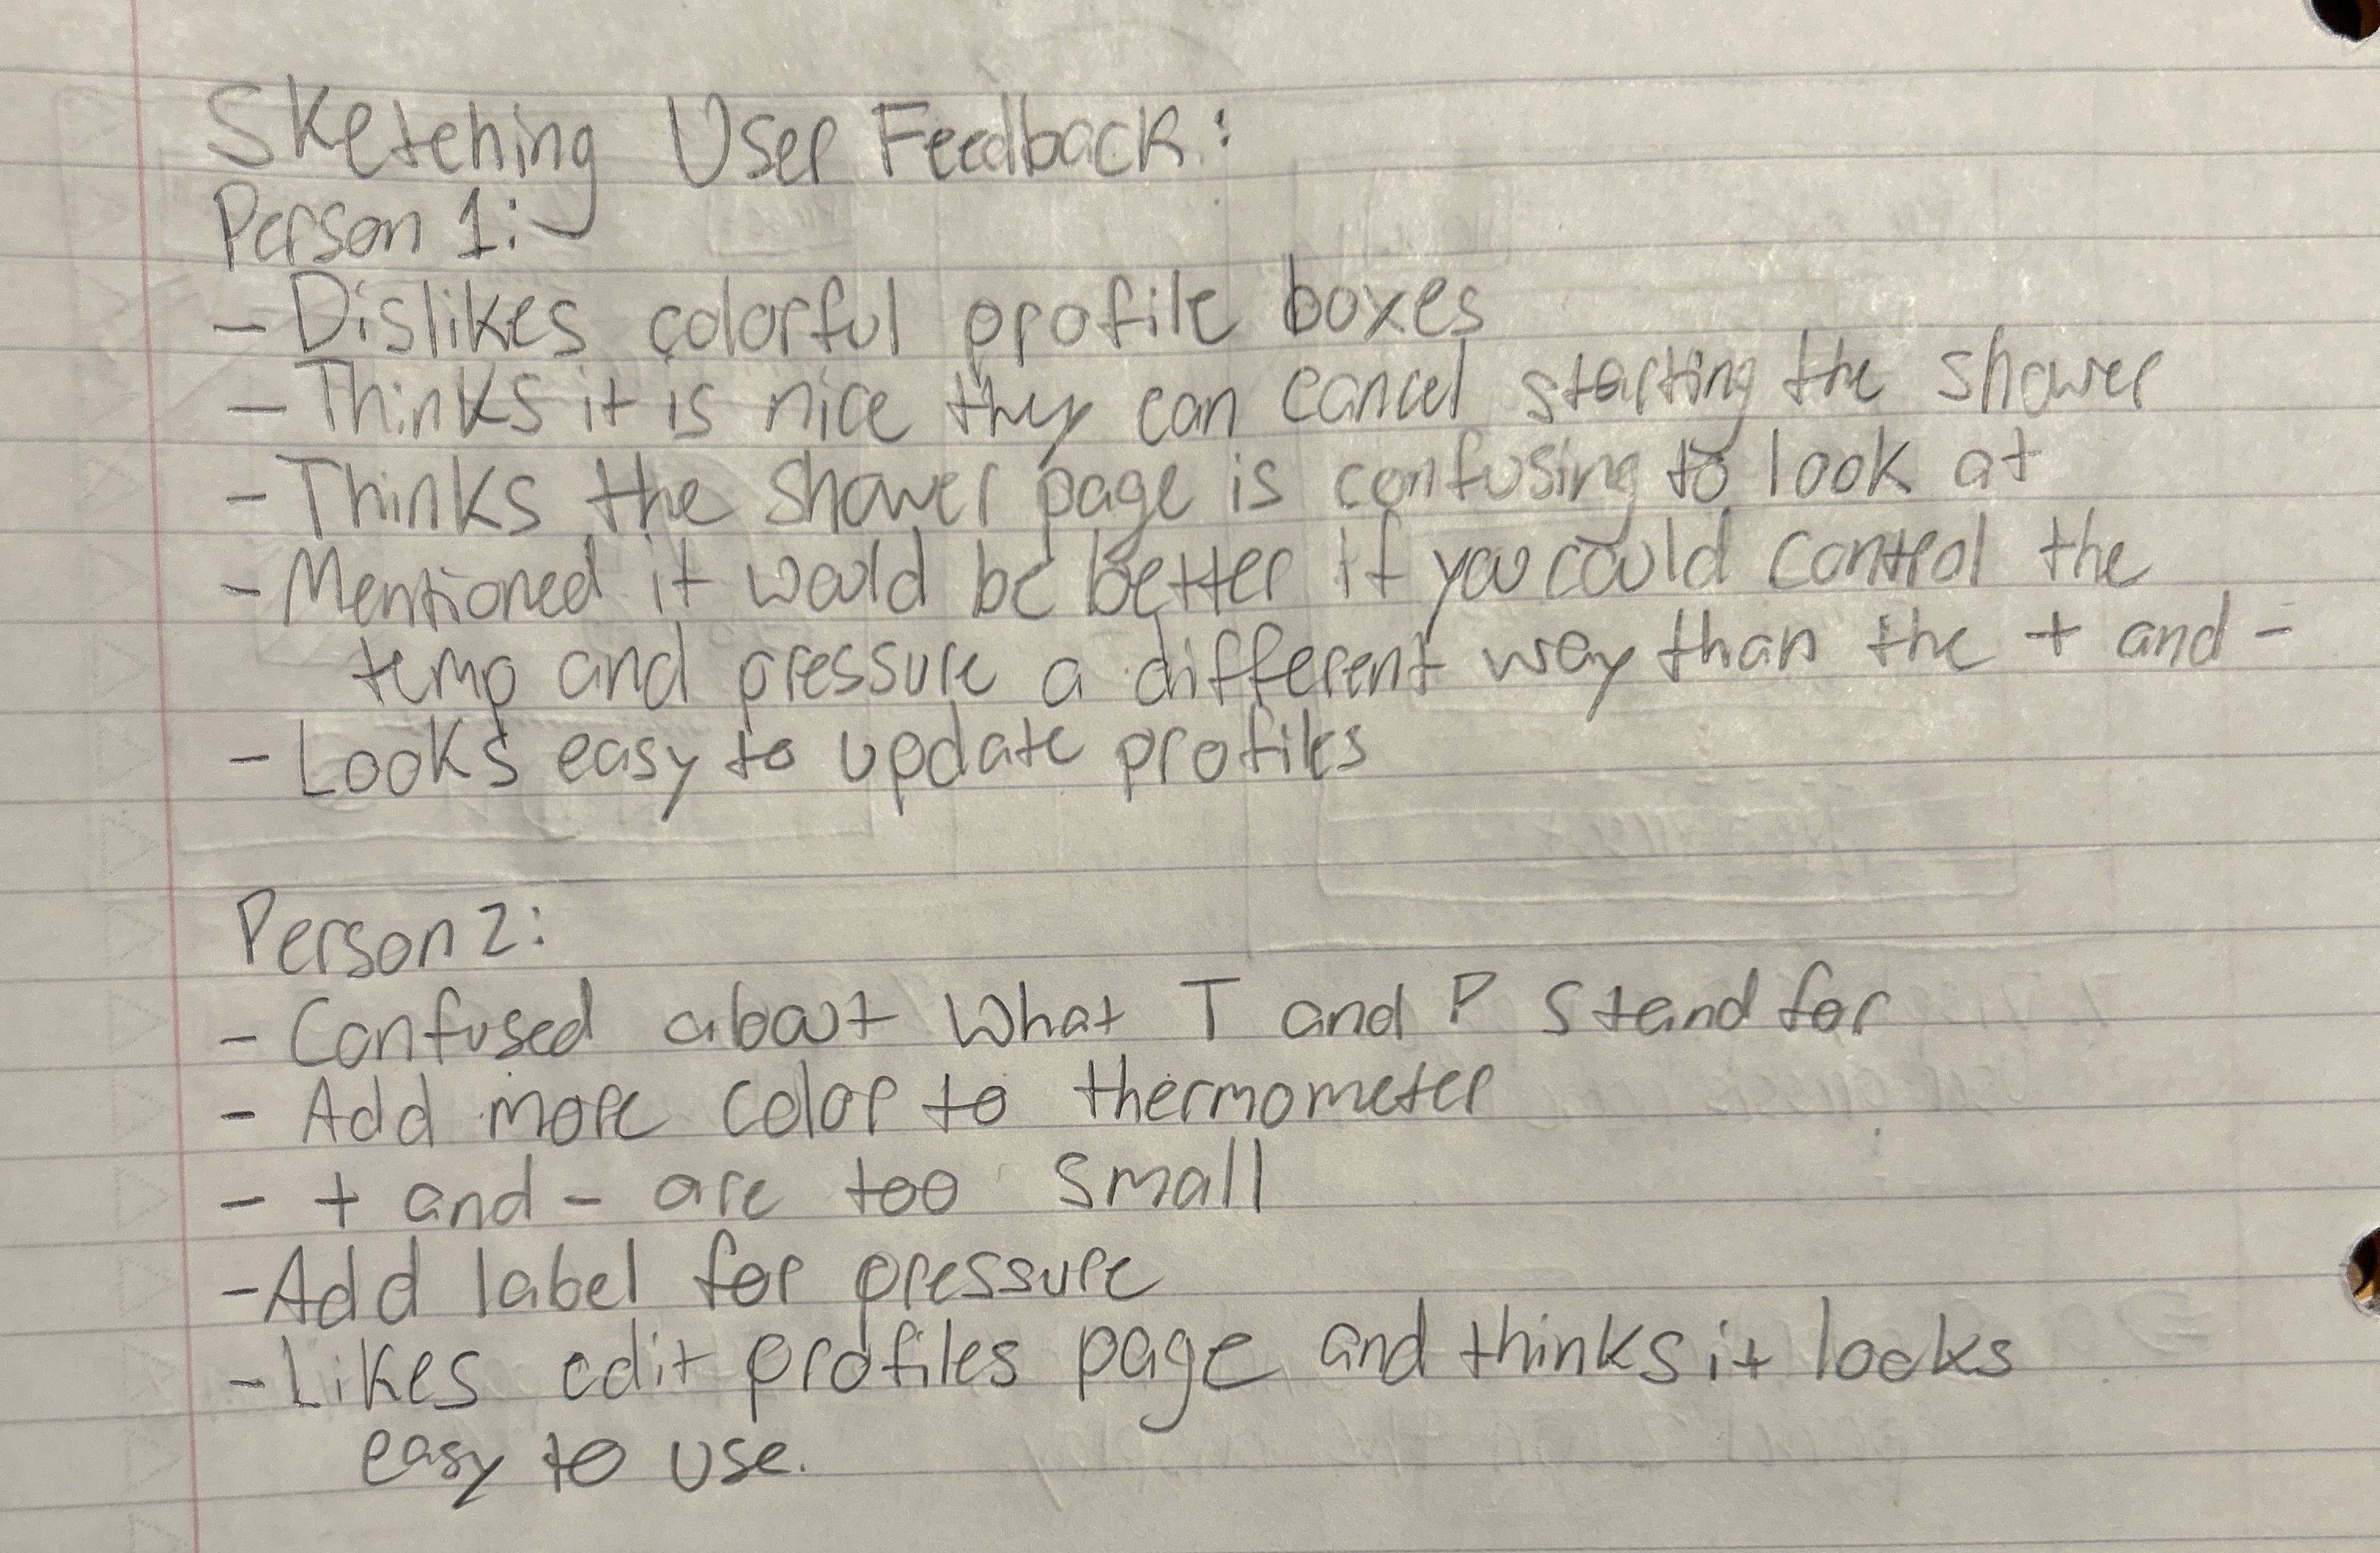 Sketching User Feedback:
Person 1:
- Dislikes colorful profile boxes
- Thinks it is nice they can cancel starting the shower
- Thinks the shower page is confusing to look at
- Mentioned it would be better if you could control the
temp and pressure a different way than the + and -
- Looks easy to update profiles
Person 2:
- Confused about what T and P stand for
- Add more color to thermometer
- + and - are too small
- Add label for pressure
- Likes edit profiles page and thinks it looks
easy to use.